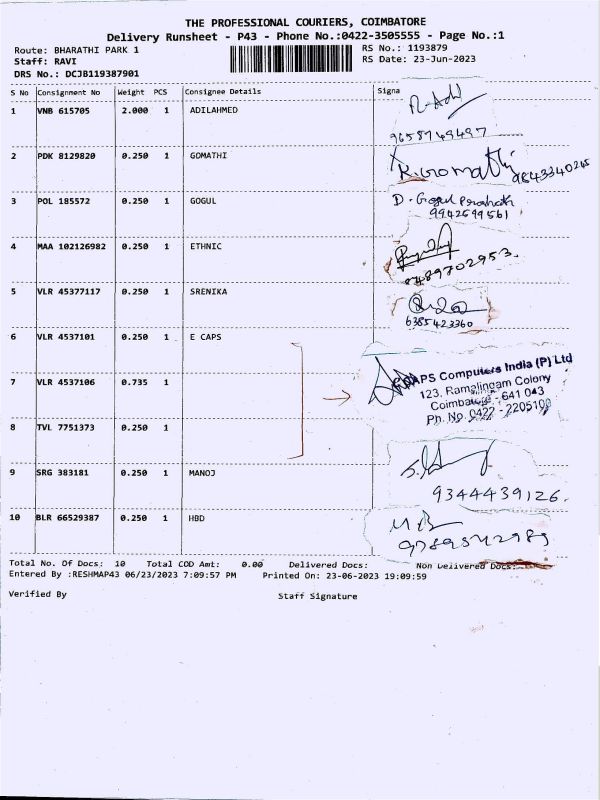 THE PROFESSIONAL COURIERS, COIMBATORE
Delivery Runsheet - P43 - Phone No.:0422-3505555 - Page No.:1
Route: BHARATHI PARK 1 RS No.: 1193879
Staff: RAVI RS Date: 23-Jun-2023
DRS No.: DCJB119387901
S No Consignment No Weight PCS Consignee Details Signa
1 VNB 615705 2.000 1 ADILAHMED
9658749497
2 PDK 8129820 0.250 1 GOMATHI R.Gomathi 9843340245
3 POL 185572 0.250 1 GOGUL D. Gogul Prashath
9942699561
4 MAA 102126982 0.250 1 ETHNIC
5 VLR 45377117 0.250 1 SRENIKA
6385423360
6 VLR 4537101 0.250 1 E CAPS
CAPS Computers India (P) Ltd
7 VLR 4537106 0.735 1 123, Ramalingam Colony
Coimbatore - 641 043
Ph. No. 0422 - 2205100
8 TVL 7751373 0.250 1
9 SRG 383181 0.250 1 MANOJ
9344439126.
10 BLR 66529387 0.250 1 HBD
Total No. Of Docs: 10 Total COD Amt: 0.00 Delivered Docs: Non Delivered Docs:
Entered By :RESHMAP43 06/23/2023 7:09:57 PM Printed On: 23-06-2023 19:09:59
Verified By Staff Signature